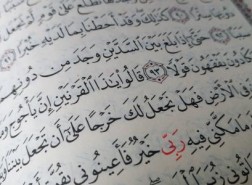 تَطْلُعُ عَلَىٰ قَوْمٍ لَّمْ نَجْعَل
كَذَٰلِكَ وَقَدْ أَحَطْنَا بِمَا لَدَيْهِ خُبْرًا
حَتَّىٰٓ إِذَا بَلَغَ بَيْنَ ٱلسَّدَّيْنِ وَجَدَ مِن دُونِهِمَا
كَادُونَ يَفْقَهُونَ قَوْلًا ٩٣ قَالُوا۟ يَٰذَا ٱلْقَرْنَيْنِ إِنَّ يَأْجُوجَ
فِى ٱلْأَرْضِ فَهَلْ نَجْعَلُ لَكَ خَرْجًا عَلَىٰٓ أَن تَجْعَلَ بَيْنَنَا
مَكَّنِّى فِيهِ رَبِّى خَيْرٌ فَأَعِينُونِى بِقُوَّةٍ